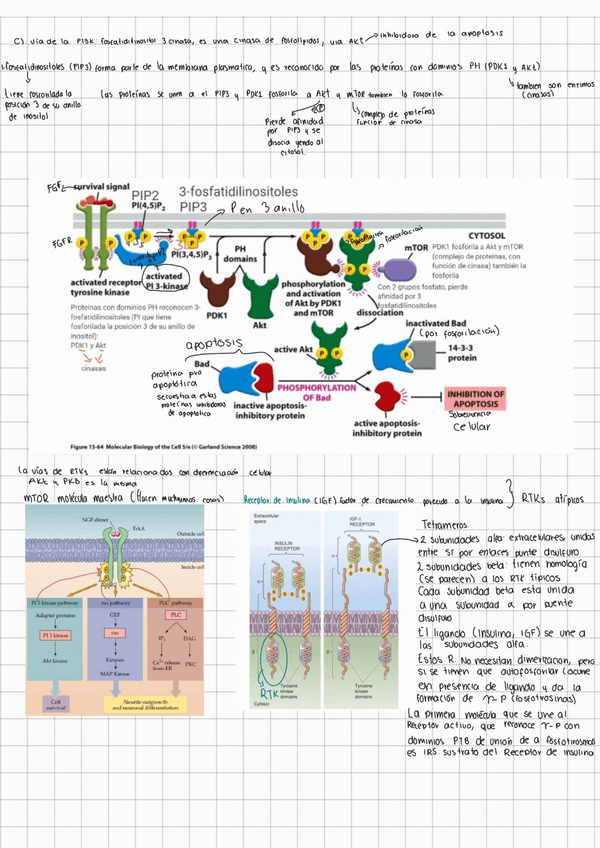 C) vía de la PI3K fosfatidilinositol 3 cinasa, es una cinasa de fosfolípidos, via Akt → inhibidora de la apoptosis
3-fosfatidilinositoles (PIP3) forma parte de la membrana plasmatica, y es reconocido por las proteínas con dominios PH (PDK1 y Akt)
tiene fosforilada la posición 3 de su anillo de inositol
Las proteínas se unen a el PIP3 y PDK1 fosforila a Akt y mTOR tambien lo fosforila
también son enzimas (cinasas)
Pierde afinidad por PIP3 y se disocia yendo al citosol.
complejo de proteínas función de cinasa
FGF survival signal
PIP2
PI(4,5)P2
3-fosfatidilinositoles
PIP3 → P en 3 anillo
FGFR
PI(3,4,5)P3
activated PI 3-kinase
activated receptor tyrosine kinase
PH domains
PDK1
Akt
CYTOSOL
mTOR
PDK1 fosforila a Akt y mTOR (complejo de proteínas, con función de cinasa) también la fosforila
Con 2 grupos fosfato, pierde afinidad por 3 fosfatidilinositoles
phosphorylation and activation of Akt by PDK1 and mTOR
dissociation
Proteínas con dominios PH reconocen 3-fosfatidilinositoles (PI que tiene fosforilada la posición 3 de su anillo de inositol):
PDK1 y Akt
cinasas
apoptosis
active Akt
inactivated Bad
(por fosforilación)
14-3-3 protein
Bad
proteína pro apoptótica
secuestra a estas proteínas inhibidoras de apoptotica
inactive apoptosis-inhibitory protein
PHOSPHORYLATION OF Bad
active apoptosis-inhibitory protein
INHIBITION OF APOPTOSIS
Sobrevivencia
celular
Figure 15-64 Molecular Biology of the Cell 5/e (© Garland Science 2008)
La vías de RTKs están relacionados con diferenciación celular
AKt y PKB es la misma
mTOR molécula maestra (Hacen muchisimas cosas)
Receptor de Insulina (IGF) factor de crecimiento parecido a la insulina } RTKs atípicos
NGF dimer
TrkA
Outside cell
Inside cell
PI 3-kinase pathway
ras pathway
PLC pathway
Adapter proteins
PI 3 kinase
Akt kinase
Cell survival
GEF
ras
Kinases
MAP Kinase
PLC
IP3
DAG
Ca2+ release from ER
PKC
Neurite outgrowth and neuronal differentiation
Extracellular space
INSULIN RECEPTOR
IGF-I RECEPTOR
α
β
RTK
Tyrosine kinase domains
Tyrosine kinase domains
Cytosol
Tetrameros
2 subunidades alfa: extracelulares, unidas
entre sí por enlaces puente disulfuro.
2 subunidades beta: tienen homología
(se parecen) a los RTK típicos
Cada subunidad beta esta unida
a una subunidad α por puente
disulfuro
El ligando (Insulina, IGF) se une a
las subunidades alfa.
Estos R. No necesitan dimerizacion, pero
si se tienen que autofosforilar (ocurre
en presencia de ligando y da la
formación de Y-P (fosfotirosinas)
La primera molécula que se une al
Receptor activo, que reconoce Y-P con
dominios PTB de unión de a fosfotirosinas
es IRS sustrato del Receptor de insulina